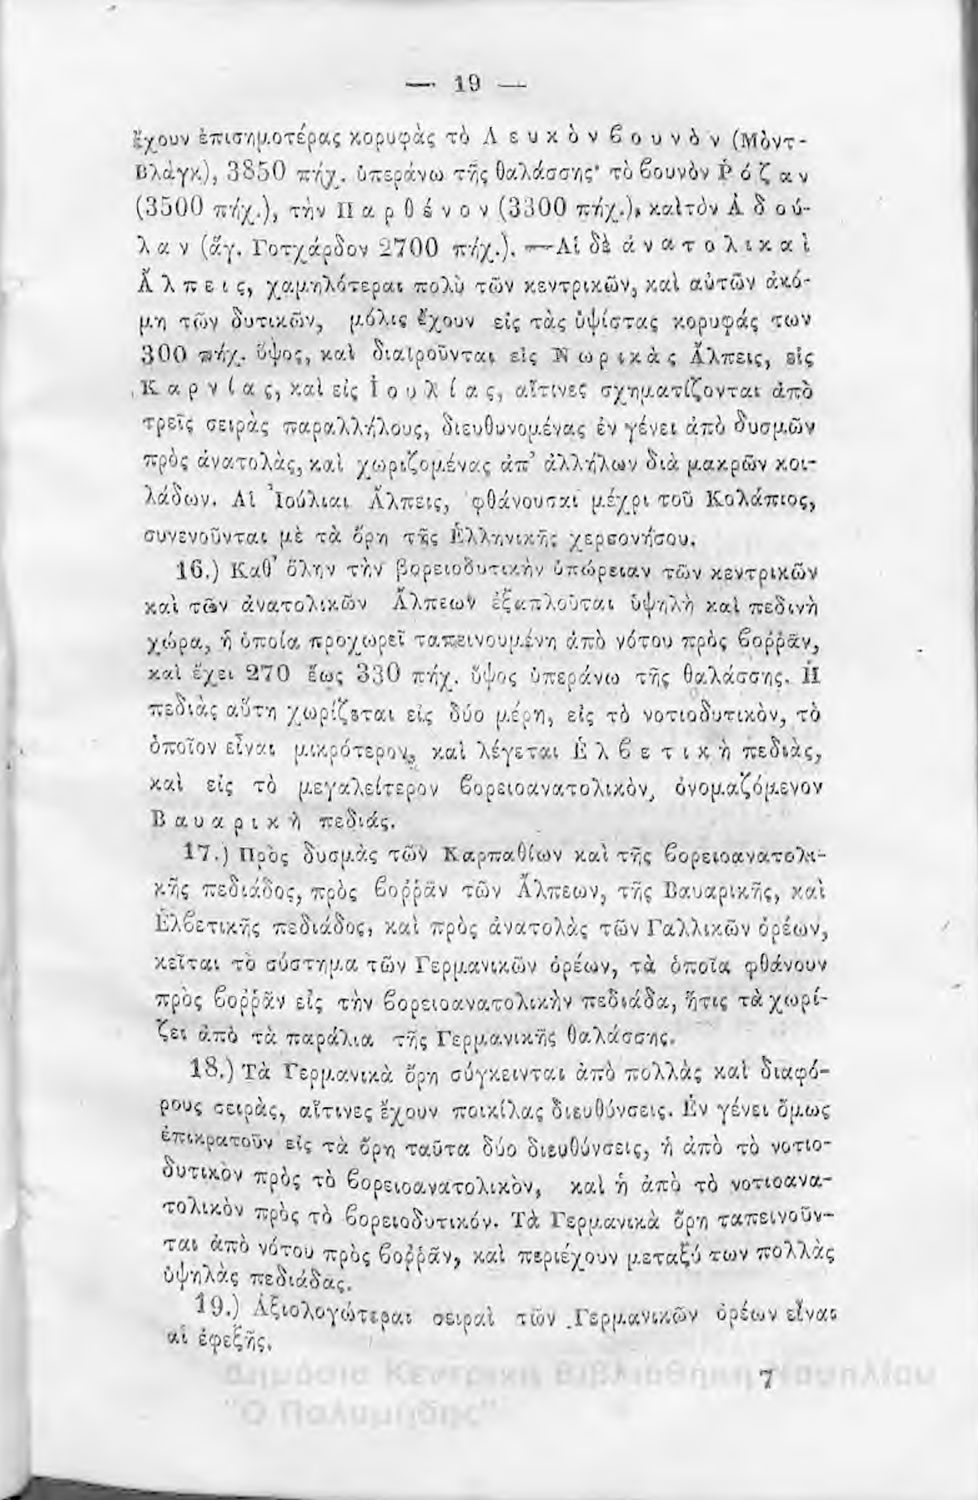 — 19 —
ἔχουν ἐπισημοτέρας κορυφὰς τὸ Λευκὸν βουνὸν (Μὸντ-
Βλὰγκ), 3850 πήχ. ὑπεράνω τῆς θαλάσσης· τὸ βουνὸν Ῥόζαν
(3500 πήχ.), τὴν Παρθένον (3300 πήχ.), καὶ τὸν Ἀδού-
λαν (ἅγ. Γοτχάρδον 2700 πήχ.). —Αἱ δὲ ἀνατολικαὶ
Ἄλπεις, χαμηλότεραι πολὺ τῶν κεντρικῶν, καὶ αὐτῶν ἀκό-
μη τῶν δυτικῶν, μόλις ἔχουν εἰς τὰς ὑψίστας κορυφάς των
300 πήχ. ὕψος, καὶ διαιροῦνται εἰς Νωρικὰς Ἄλπεις, εἰς
Καρνίας, καὶ εἰς Ἰουλίας, αἵτινες σχηματίζονται ἀπὸ
τρεῖς σειρὰς παραλλήλους, διευθυνομένας ἐν γένει ἀπὸ δυσμῶν
πρὸς ἀνατολὰς, καὶ χωριζομένας ἀπ’ ἀλλήλων διὰ μακρῶν κοι-
λάδων. Αἱ Ἰούλιαι Ἄλπεις, φθάνουσαι μέχρι τοῦ Κολάπιος,
συνενοῦνται μὲ τὰ ὄρη τῆς Ἑλληνικῆς χερσονήσου.
16.) Καθ’ ὅλην τὴν βορειοδυτικὴν ὑπώρειαν τῶν κεντρικῶν
καὶ τῶν ἀνατολικῶν Ἄλπεων ἐξαπλοῦται ὑψηλὴ καὶ πεδινὴ
χώρα, ἡ ὁποία προχωρεῖ ταπεινουμένη ἀπὸ νότου πρὸς βοῤῥᾶν,
καὶ ἔχει 270 ἕως 330 πήχ. ὕψος ὑπεράνω τῆς θαλάσσης. Ἡ
πεδιὰς αὕτη χωρίζεται εἰς δύο μέρη, εἰς τὸ νοτιοδυτικὸν, τὸ
ὁποῖον εἶναι μικρότερον, καὶ λέγεται Ἑλβετικὴ πεδιὰς,
καὶ εἰς τὸ μεγαλείτερον βορειοανατολικὸν, ὀνομαζόμενον
Βαυαρικὴ πεδιάς.
17.) Πρὸς δυσμὰς τῶν Καρπαθίων καὶ τῆς βορειοανατολι-
κῆς πεδιάδος, πρὸς βοῤῥᾶν τῶν Ἄλπεων, τῆς Βαυαρικῆς, καὶ
Ἑλβετικῆς πεδιάδος, καὶ πρὸς ἀνατολὰς τῶν Γαλλικῶν ὀρέων,
κεῖται τὸ σύστημα τῶν Γερμανικῶν ὀρέων, τὰ ὁποῖα φθάνουν
πρὸς βοῤῥᾶν εἰς τὴν βορειοανατολικὴν πεδιάδα, ἥτις τὰ χωρί-
ζει ἀπὸ τὰ παράλια τῆς Γερμανικῆς θαλάσσης.
18.) Τὰ Γερμανικὰ ὄρη σύγκεινται ἀπὸ πολλὰς καὶ διαφό-
ρους σειρὰς, αἵτινες ἔχουν ποικίλας διευθύνσεις. Ἐν γένει ὅμως
ἐπικρατοῦν εἰς τὰ ὄρη ταῦτα δύο διευθύνσεις, ἡ ἀπὸ τὸ νοτιο-
δυτικὸν πρὸς τὸ βορειοανατολικὸν, καὶ ἡ ἀπὸ τὸ νοτιοανα-
τολικὸν πρὸς τὸ βορειοδυτικόν. Τὰ Γερμανικὰ ὄρη ταπεινοῦν-
ται ἀπὸ νότου πρὸς βοῤῥᾶν, καὶ περιέχουν μεταξύ των πολλὰς
ὑψηλὰς πεδιάδας.
19.) Ἀξιολογώτεραι σειραὶ τῶν Γερμανικῶν ὀρέων εἶναι
αἱ ἐφεξῆς.
7
Δημόσια Κεντρική Βιβλιοθήκη Ναυπλίου
"Ο Παλαμήδης"